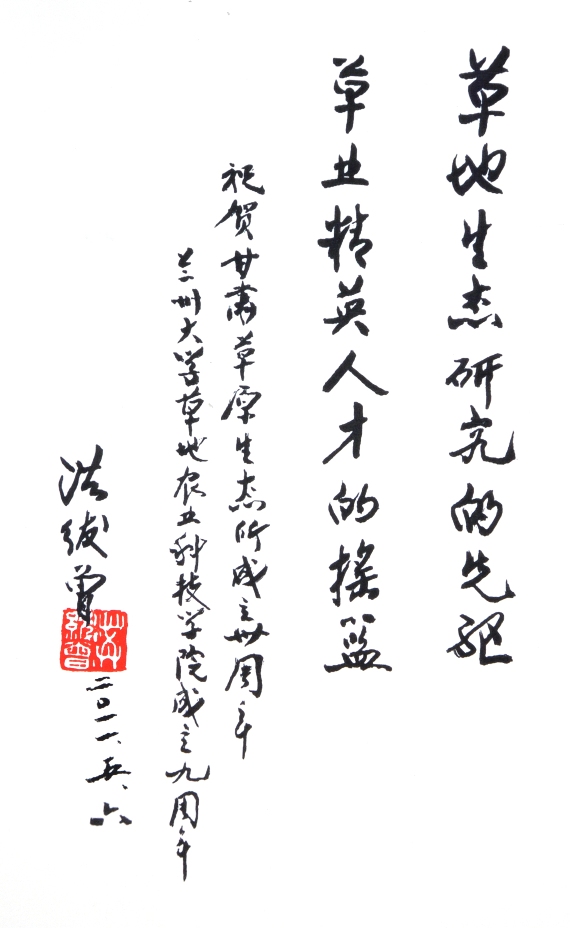 草地生态研究的先驱
草业精英人才的摇篮
祝贺甘肃草原生态所成立卅周年
兰州大学草地农业科技学院成立九周年
洪绂曾
二〇一一、五、六
洪绂曾